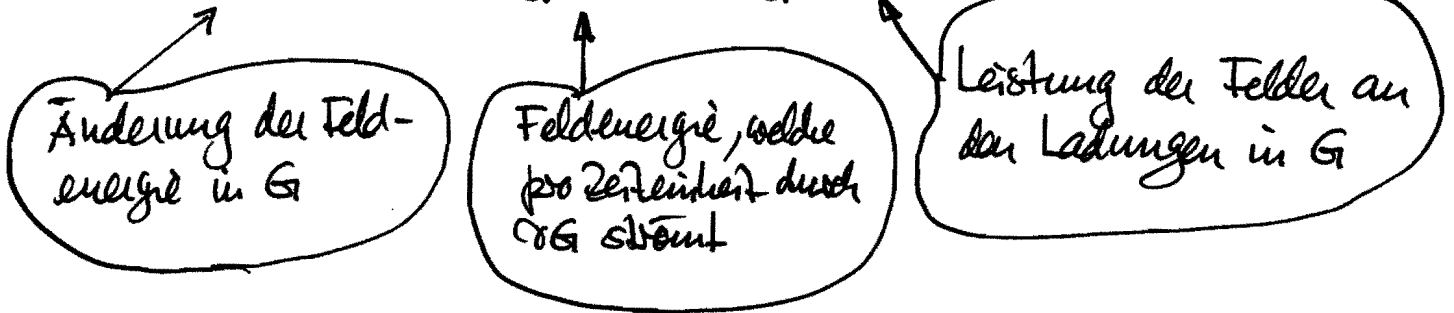 Änderung der Feld-
energie in G
Feldenergie, welche
pro Zeiteinheit durch
∂G strömt
Leistung der Felder an
den Ladungen in G